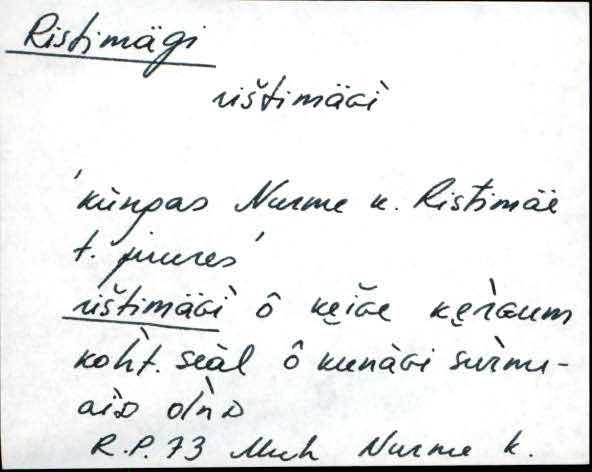 Ristimägi
rištimäɢì
'küngas Nurme k. Ristimäe
t. juures'
rištimäɢì ô kęiɢe kęrɢum
koht. seàl ô kunàɢi surnu-
aiᴅ olnᴅ
R.P. 73 Muh Nurme k.